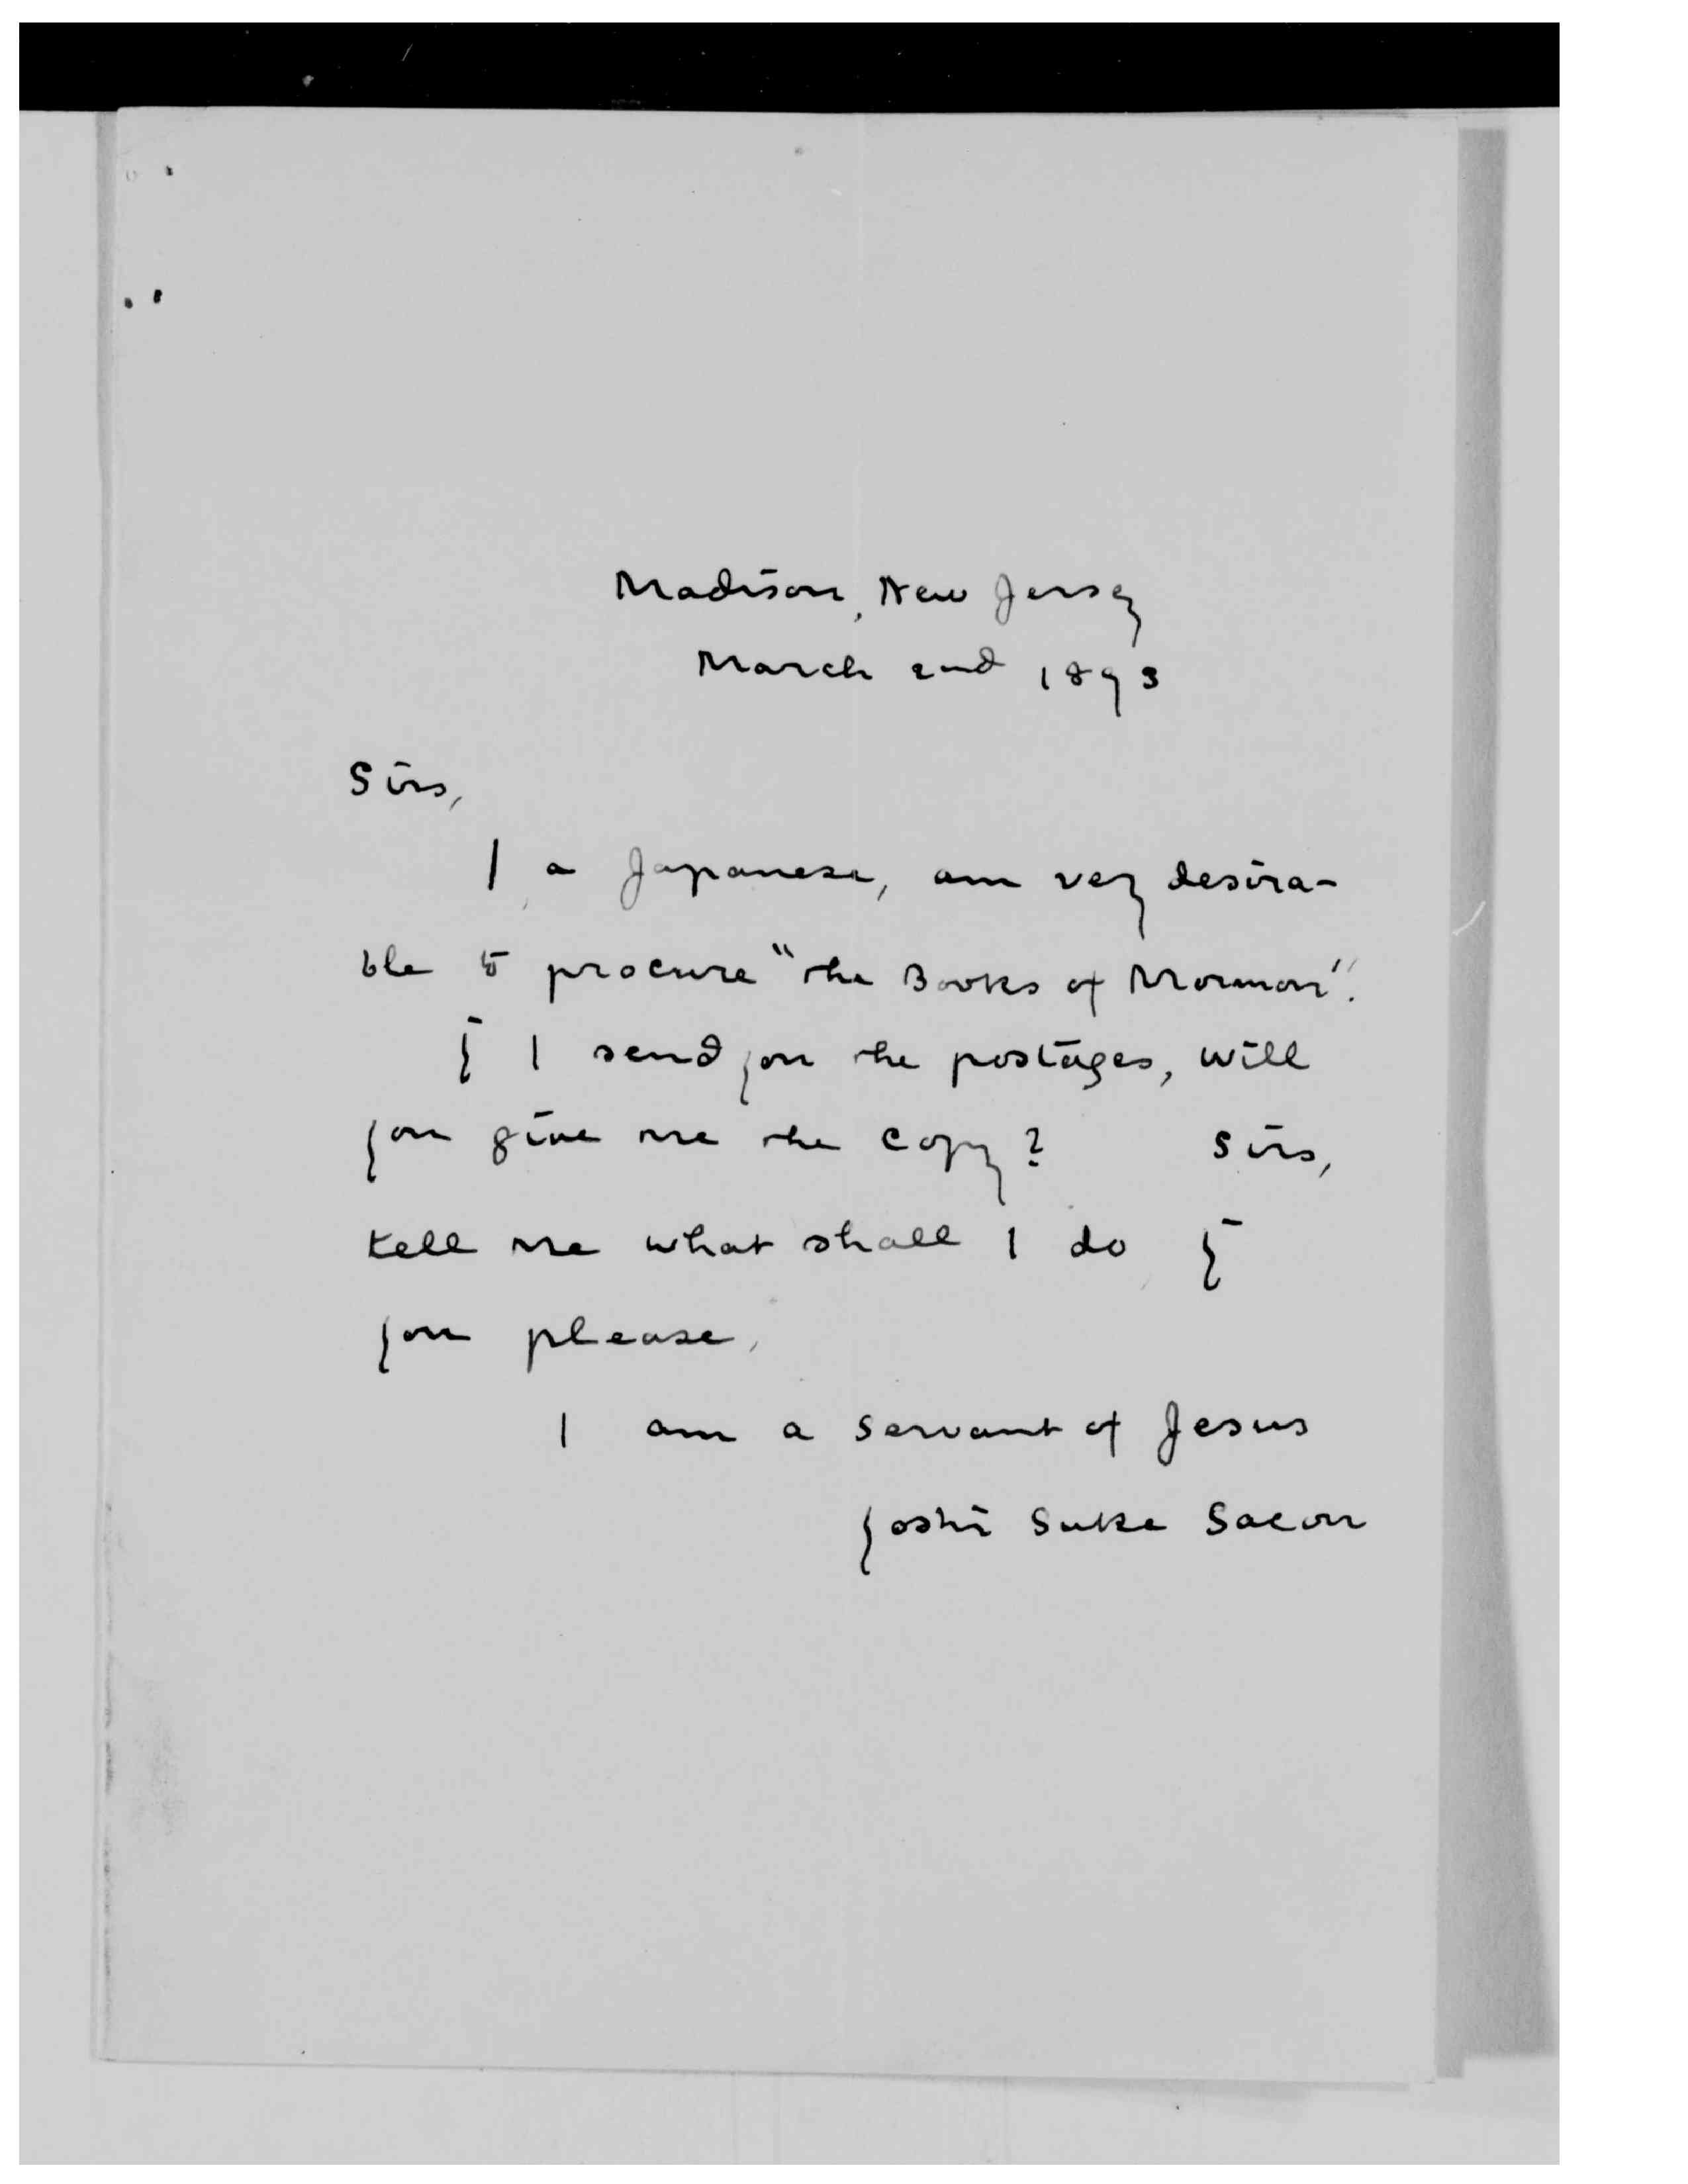 Madison, New Jersey
March 2nd 1893
Sirs,
I, a Japanese, am very desira-
ble to procure "the Books of Mormon".
If I send you the postages, will
you give me the copy? Sirs,
tell me what shall I do, if
you please,
I am a servant of Jesus
Yoshi Suke Sacon